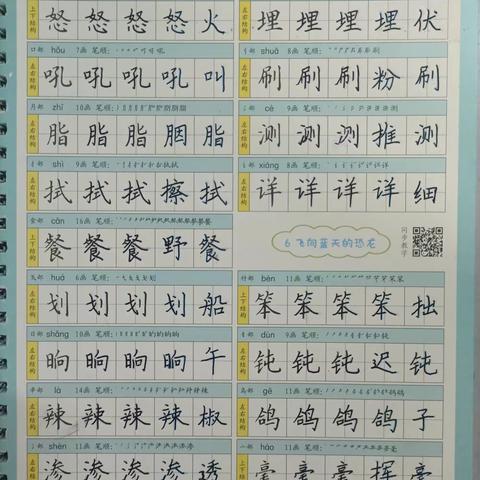 上下结构 怒怒怒怒火
口部 hǒu 7画 笔顺:
左右结构 吼吼吼吼叫
月部 zhī 10画 笔顺:
左右结构 脂脂脂胭脂
扌部 shì 9画 笔顺:
左右结构 拭拭拭擦拭
食部 cān 16画 笔顺:
上下结构 餐餐餐野餐
戈部 huá 6画 笔顺:
左右结构 划划划划船
日部 shǎng 10画 笔顺:
左右结构 晌晌晌晌午
辛部 là 14画 笔顺:
左右结构 辣辣辣辣椒
氵部 shèn 11画 笔顺:
左右结构 渗渗渗渗透
左右结构 埋埋埋埋伏
刂部 shuā 8画 笔顺:
左右结构 刷刷刷粉刷
氵部 cè 9画 笔顺:
左右结构 测测测推测
讠部 xiáng 8画 笔顺:
左右结构 详详详详细
6 飞向蓝天的恐龙
同步教学
竹部 bèn 11画 笔顺:
上下结构 笨笨笨笨拙
钅部 dùn 9画 笔顺:
左右结构 钝钝钝迟钝
鸟部 gē 11画 笔顺:
左右结构 鸽鸽鸽鸽子
亠部 háo 11画 笔顺:
上下结构 毫毫毫挥毫